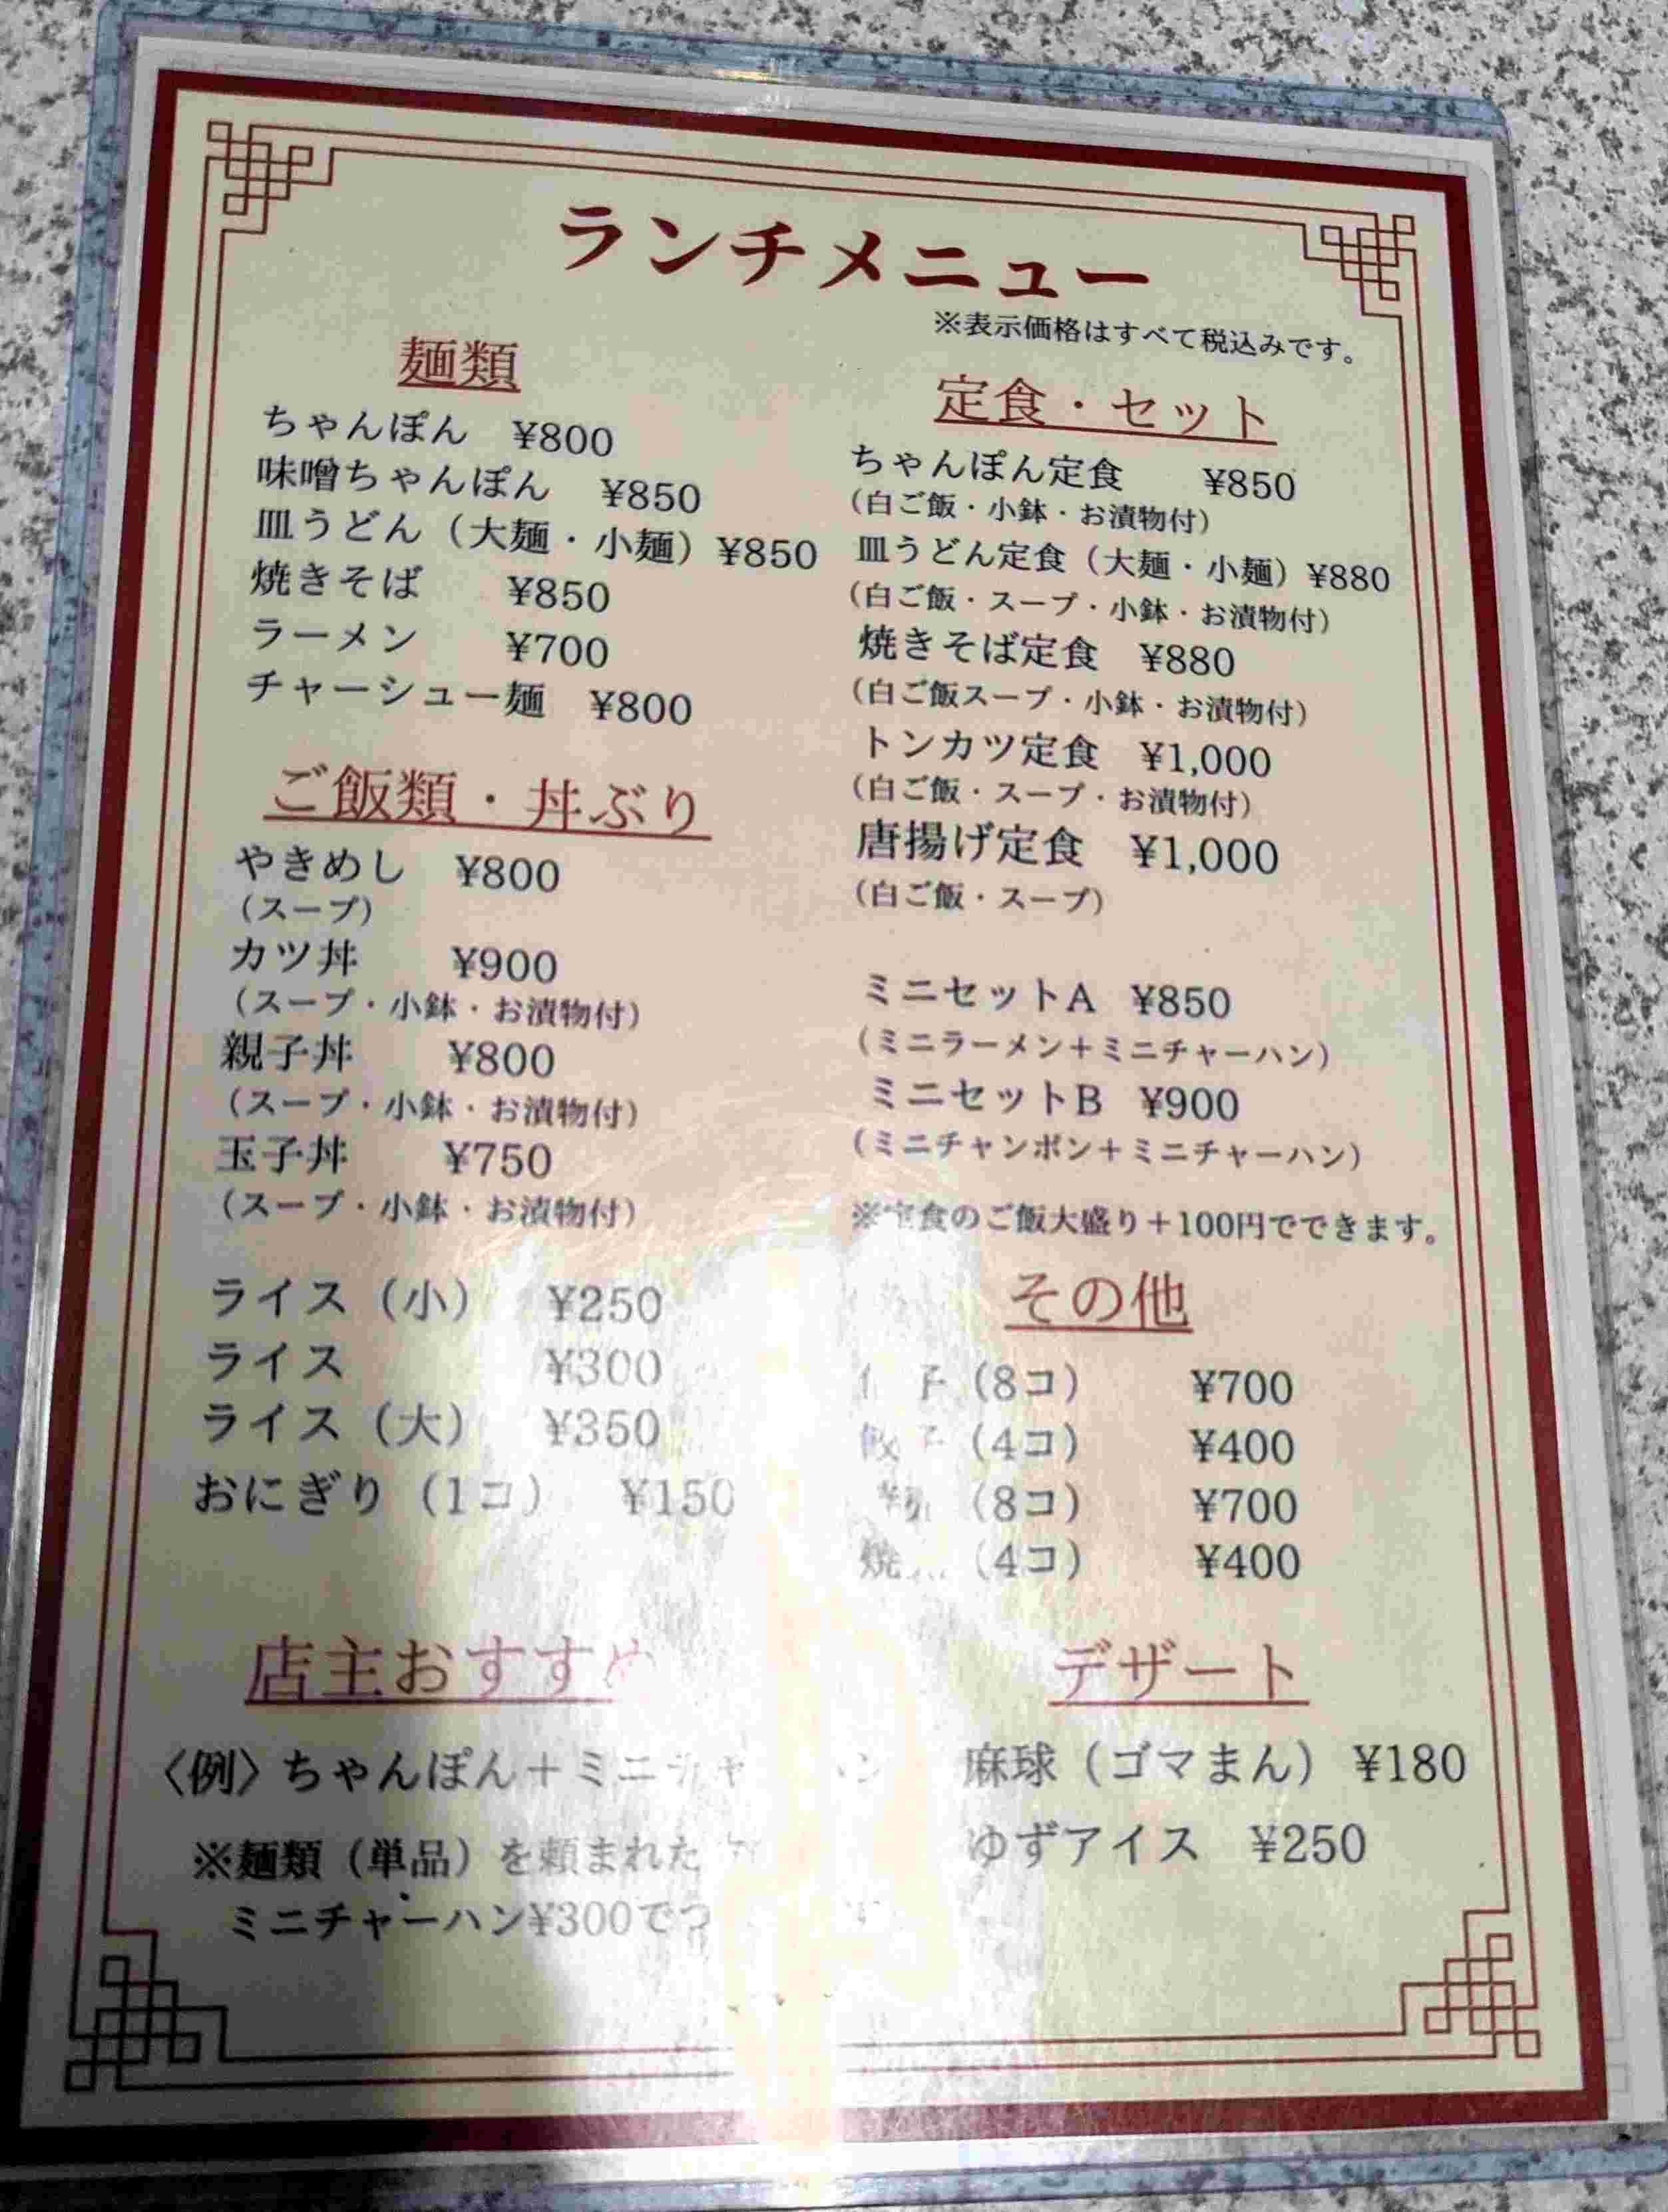 ランチメニュー
※表示価格はすべて税込みです。
麺類
ちゃんぽん ¥800
味噌ちゃんぽん ¥850
皿うどん（大麺・小麺）¥850
焼きそば ¥850
ラーメン ¥700
チャーシュー麺 ¥800
ご飯類・丼ぶり
やきめし ¥800
（スープ）
カツ丼 ¥900
（スープ・小鉢・お漬物付）
親子丼 ¥800
（スープ・小鉢・お漬物付）
玉子丼 ¥750
（スープ・小鉢・お漬物付）
ライス（小） ¥250
ライス ¥300
ライス（大） ¥350
おにぎり（1コ） ¥150
店主おすすめ
〈例〉ちゃんぽん＋ミニチャーハン
※麺類（単品）を頼まれた
ミニチャーハン¥300で
定食・セット
ちゃんぽん定食 ¥850
（白ご飯・小鉢・お漬物付）
皿うどん定食（大麺・小麺）¥880
（白ご飯・スープ・小鉢・お漬物付）
焼きそば定食 ¥880
（白ご飯スープ・小鉢・お漬物付）
トンカツ定食 ¥1,000
（白ご飯・スープ・お漬物付）
唐揚げ定食 ¥1,000
（白ご飯・スープ）
ミニセットA ¥850
（ミニラーメン＋ミニチャーハン）
ミニセットB ¥900
（ミニチャンポン＋ミニチャーハン）
※定食のご飯大盛り＋100円でできます。
その他
（8コ） ¥700
餃子（4コ） ¥400
（8コ） ¥700
（4コ） ¥400
デザート
麻球（ゴマまん） ¥180
ゆずアイス ¥250